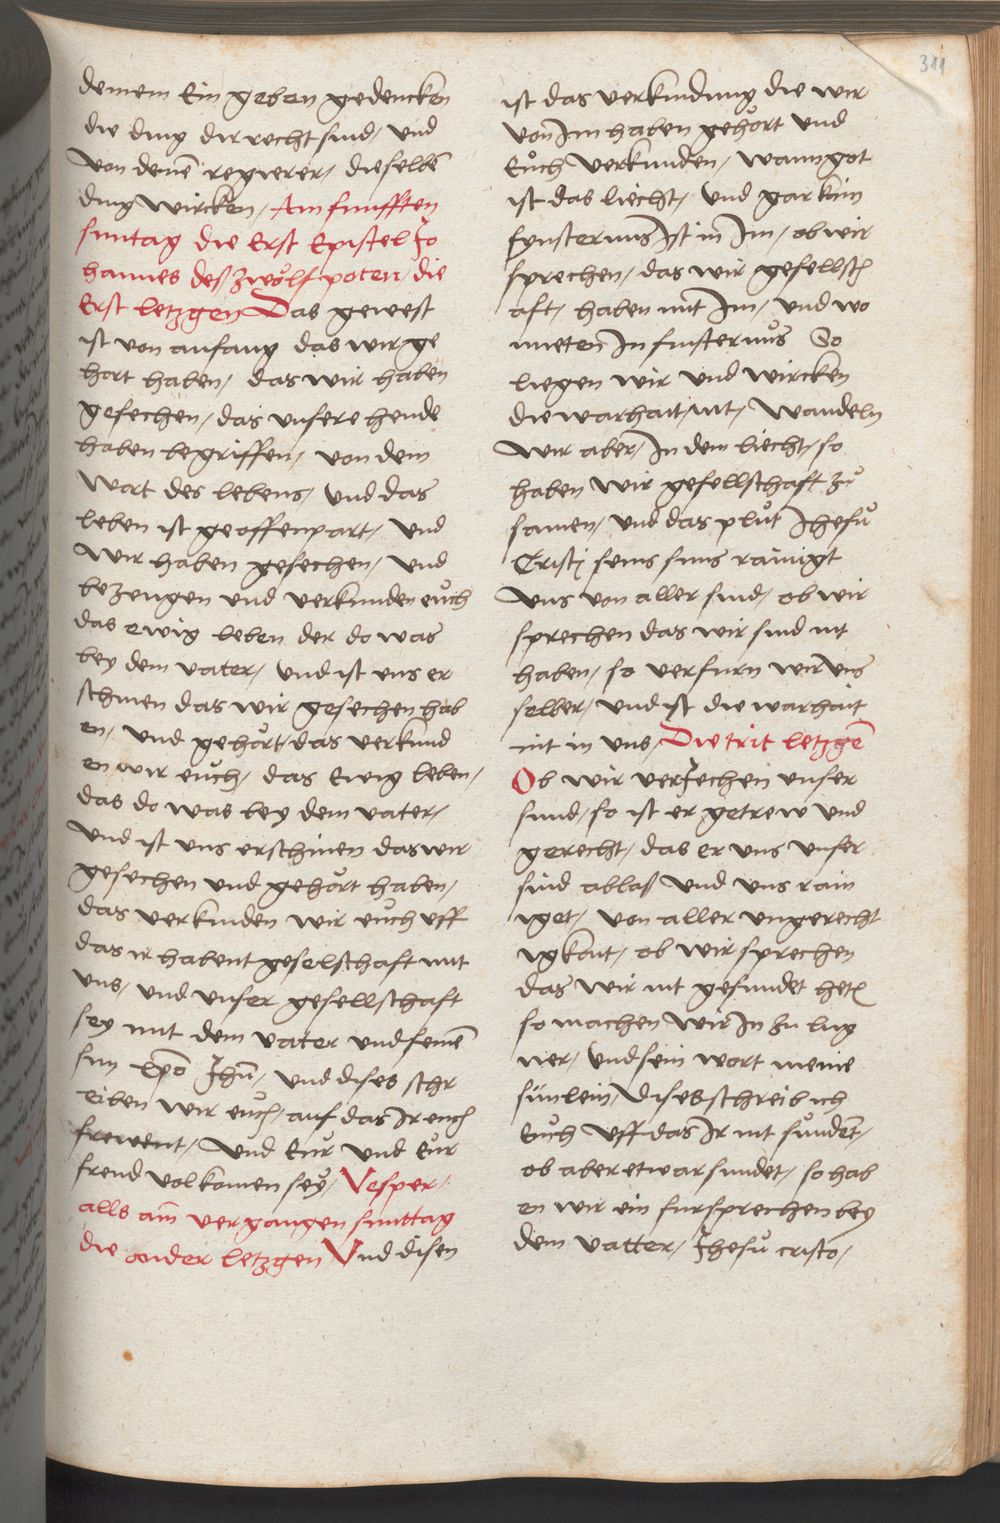 311
deinem Ein geben gedencken
die ding die recht sind, und
von deinē regierer, dieselbē
ding wircken, Am funfften
suntag die Erst Epistel Jo
hannes deß zwolfpoten die
Erst letzgen Das gewest
ist von anfang das wir ge
hort haben, das wir haben
gesechen, das unsere hende
haben begriffen, von dem
wort des lebens, Und das
leben ist geoffenpart, und
wir haben gesechen, und
bezeugen und verkunden eůch
das ewig leben der do was
bey dem vater, Und ist uns er
schinen das wir gesechen hab
en, und gehort, das verkund
en wir eůch, das Ewig leben,
das do was bey dem vater,
und ist uns erschinen das wir
gesechen und gehört haben,
das verkunden wir eůch uff
das ir habent geselschaft mit
uns, und unser gesellschaft
sey mit dem vater und seinē
sun xp̄o Jhū, und dises schr
eiben wir eůch, auf das Ir euch
frewent, und Eůr und Eůr
freud volkomen sey, Vesper,
alls am vergangen sunttag
die ander letzgen Und disen
ist das verkundung die wir
von Im haben gehört und
Eůch verkunden, wann got
ist das liecht, Und gar kain
fynsternus Ist in Im, ob wir
sprechen, das wir gesellsch
aft, haben mit Im, und wo
nneten In finsternůs So
liegen wir und wircken
die warhait, nit, Wandeln
wir aber, In dem liecht, so
haben wir gesellschaft zů
samen, und das plůt Jhesů
Cristj seins suns rainigt
uns von aller sund, ob wir
sprechen das wir sind nit
haben, so verfurn wir uns
selber, und ist die warhait
nit in uns, Die trit letzgē
Ob wir verJechein unser
sund, so ist er getrew und
gerecht, das er uns unser
sind ablaß und uns rain
iget, von aller ungerecht
igkait, ob wir sprechen
das wir nit gesundet hetē
so machen wir In zu lug
ner, Und sein wort meine
sünlein, Dises schreib ich
Eůch uff das Ir nit sundet,
ob aber etwar sundet, so hab
en wir ein fursprechen bey
dem vatter, Jhesů cristo,